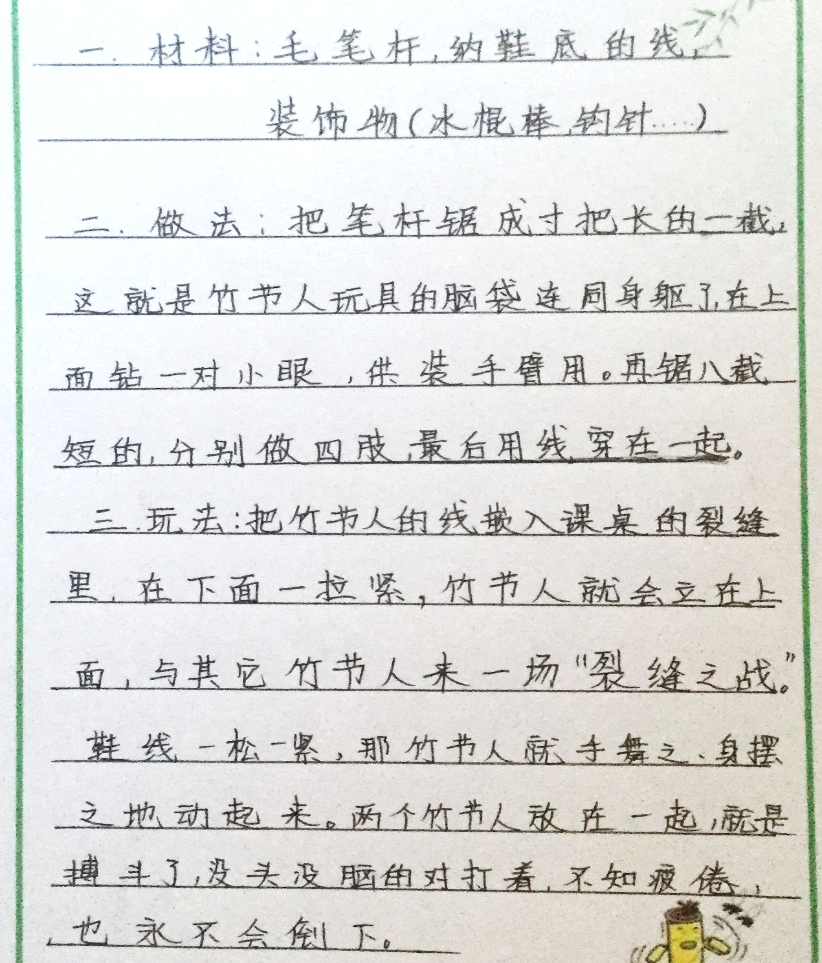 一.材料:毛笔杆,纳鞋底的线,
装饰物(冰棍棒,钩针……)
二.做法:把笔杆锯成寸把长的一截,
这就是竹节人玩具的脑袋连同身躯了,在上
面钻一对小眼,供装手臂用。再锯八截
短的,分别做四肢,最后用线穿在一起。
三.玩法:把竹节人的线嵌入课桌的裂缝
里,在下面一拉紧,竹节人就会立在上
面,与其它竹节人来一场“裂缝之战。”
鞋线一松一紧,那竹节人就手舞之、身摆
之地动起来。两个竹节人放在一起,就是
搏斗了,没头没脑的对打着,不知疲倦,
也永不会倒下。